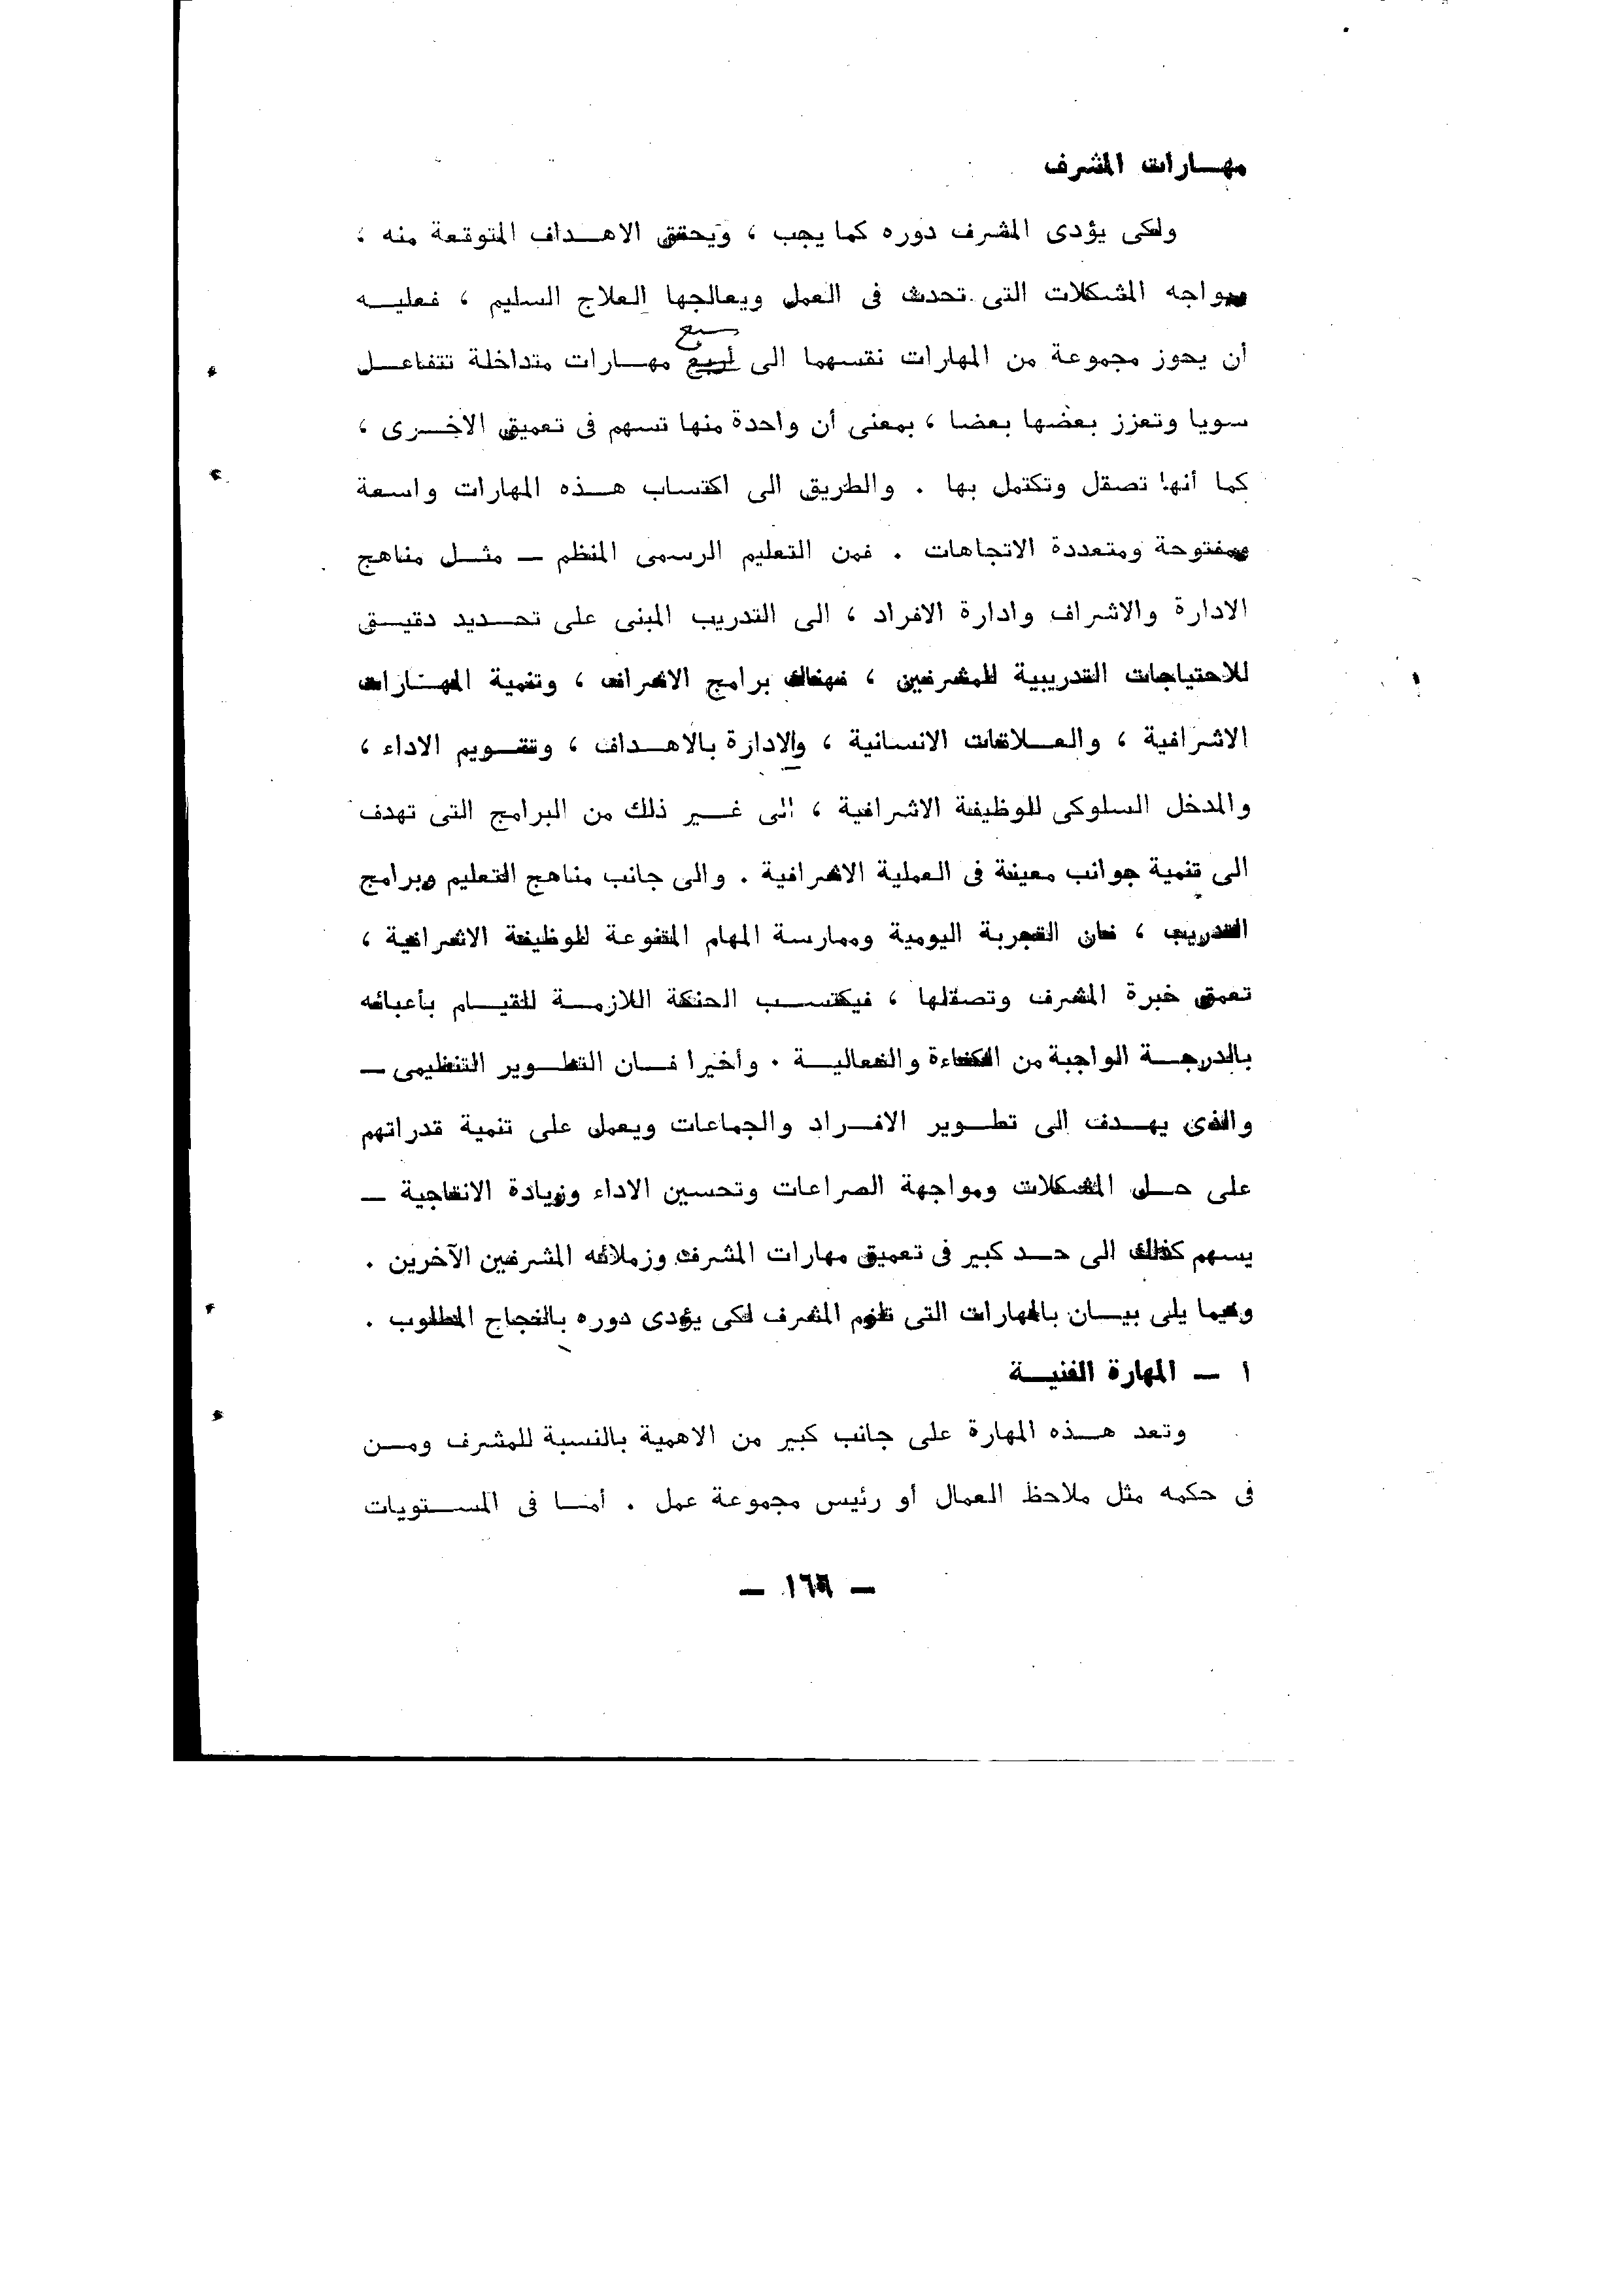 مهـــارات المشرف
ولكى يؤدى المشرف دوره كما يجب ، ويحقق الاهـــداف المتوقعة منه ،
ويواجه المشكلات التى تحدث فى العمل ويعالجها العلاج السليم ، فعليـــه
سبع
أن يحوز مجموعة من المهارات نقسهما الى أربع مهـــارات متداخلة تتفاعـــل
سويا وتعزز بعضها بعضا ، بمعنى أن واحدة منها تسهم فى تعميق الاخـــرى ،
كما أنها تصقل وتكتمل بها . والطريق الى اكتساب هـــذه المهارات واسعة
ومفتوحة ومتعددة الاتجاهات . فمن التعليم الرسمى المنظم — مثـــل مناهج
الادارة والاشراف وادارة الافراد ، الى التدريب المبنى على تحـــديد دقيـــق
للاحتياجات التدريبية للمشرفين ، فهناك برامج الاشراف ، وتنمية المهـــارات
الاشرافية ، والعـــلاقات الانسانية ، والادارة بالاهـــداف ، وتقـــويم الاداء ،
والمدخل السلوكى للوظيفة الاشرافية ، الى غـــير ذلك من البرامج التى تهدف
الى تنمية جوانب معينة فى العملية الاشرافية . والى جانب مناهج التعليم وبرامج
التدريب ، فان التجربة اليومية وممارسة المهام المتنوعة للوظيفة الاشرافية ،
تعمق خبرة المشرف وتصقلها ، فيكتســـب الحنكة اللازمـــة للقيـــام بأعبائه
بالدرجـــة الواجبة من الكفاءة والفعاليـــة . وأخيرا فـــان التطـــوير التنظيمى —
والذى يهـــدف الى تطـــوير الافـــراد والجماعات ويعمل على تنمية قدراتهم
على حـــل المشكلات ومواجهة الصراعات وتحسين الاداء وزيادة الانتاجية —
يسهم كذلك الى حـــد كبير فى تعميق مهارات المشرف وزملائه المشرفين الآخرين .
وفيما يلى بيـــان بالمهارات التى تلزم المشرف لكى يؤدى دوره بالنجاح المطلوب .
١ — المهارة الفنيـــة
وتعد هـــذه المهارة على جانب كبير من الاهمية بالنسبة للمشرف ومـــن
فى حكمه مثل ملاحظ العمال أو رئيس مجموعة عمل . أمـــا فى المســـتويات
— ١٦٦ —